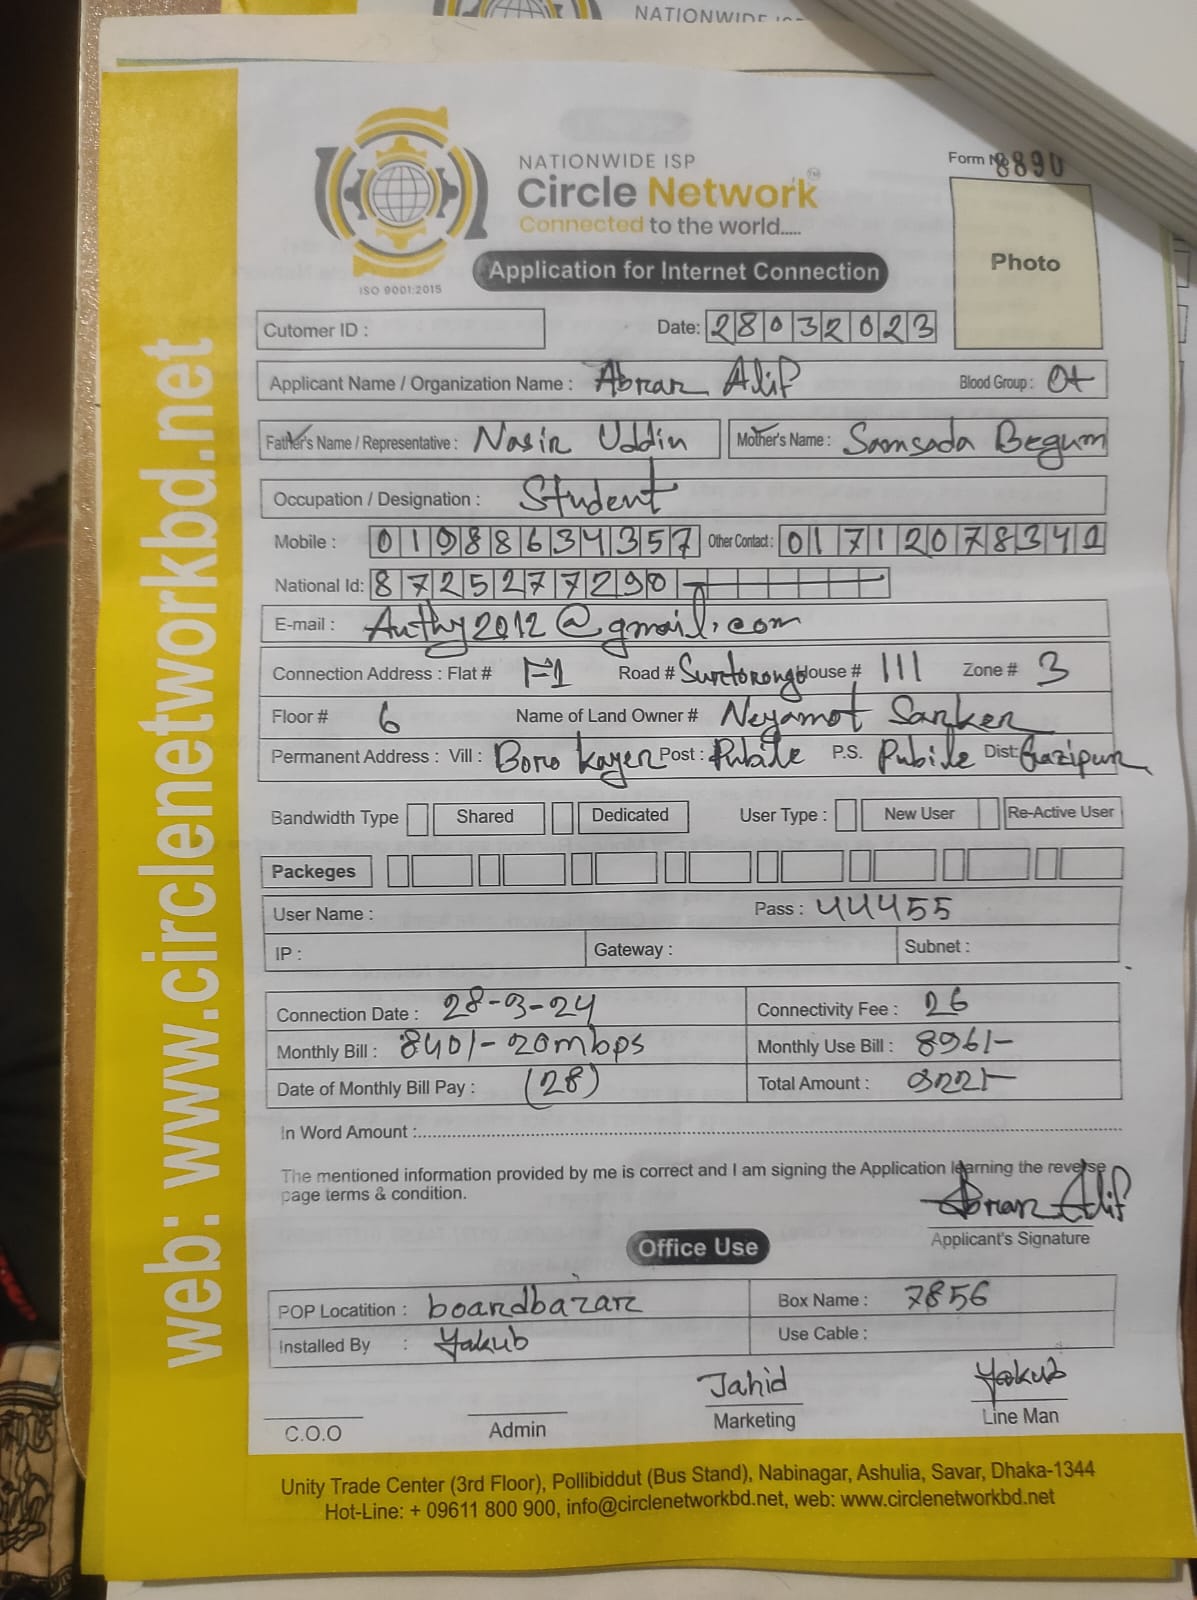 NATIONWIDE
NATIONWIDE ISP
Circle Network
Connected to the world.....
ISO 9001:2015
Application for Internet Connection
Form No 8890
Photo
Cutomer ID :
Date: 28032023
Applicant Name / Organization Name : Abrar Alif Blood Group : O+
Father's Name / Representative : Nasir Uddin Mother's Name : Samsada Begum
Occupation / Designation : Student
Mobile : 01988634357 Other Contact : 01712078341
National Id: 8725277290
E-mail : Authy2012@gmail.com
Connection Address : Flat # F1 Road # Surtorongo House # 111 Zone # 3
Floor # 6 Name of Land Owner # Neyamot Sarker
Permanent Address : Vill : Boro Kayer Post : Pubile P.S. Pubile Dist: Gazipur
Bandwidth Type Shared Dedicated User Type : New User Re-Active User
Packeges
User Name : Pass : 44455
IP : Gateway : Subnet :
Connection Date : 28-3-24 Connectivity Fee : 26
Monthly Bill : 840/- 20mbps Monthly Use Bill : 896/-
Date of Monthly Bill Pay : (28) Total Amount :
In Word Amount :
The mentioned information provided by me is correct and I am signing the Application learning the reverse
page terms & condition.
Abrar Alif
Applicant's Signature
Office Use
POP Locatition : boardbazar Box Name : 7856
Installed By : Yakub Use Cable :
Jahid Yakub
C.O.O Admin Marketing Line Man
Unity Trade Center (3rd Floor), Pollibiddut (Bus Stand), Nabinagar, Ashulia, Savar, Dhaka-1344
Hot-Line: + 09611 800 900, info@circlenetworkbd.net, web: www.circlenetworkbd.net
web: www.circlenetworkbd.net